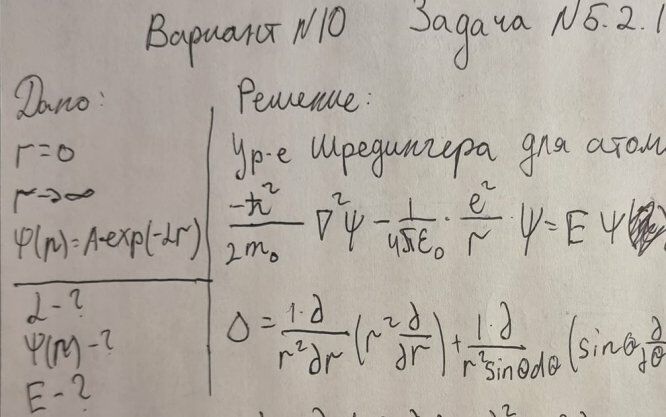 Вариант №10 Задача №5.2.1
Дано:
r=0
r→∞
Ψ(r)=A·exp(-αr)
α-?
Ψ(r)-?
E-?
Решение:
Ур-е Шредингера для атом
-ħ²/2m₀ ∇²Ψ - 1/4πε₀ · e²/r · Ψ = E Ψ
Δ = 1·∂/r²∂r (r² ∂/∂r) + 1·∂/r²sinθdθ (sinθ ∂/∂θ